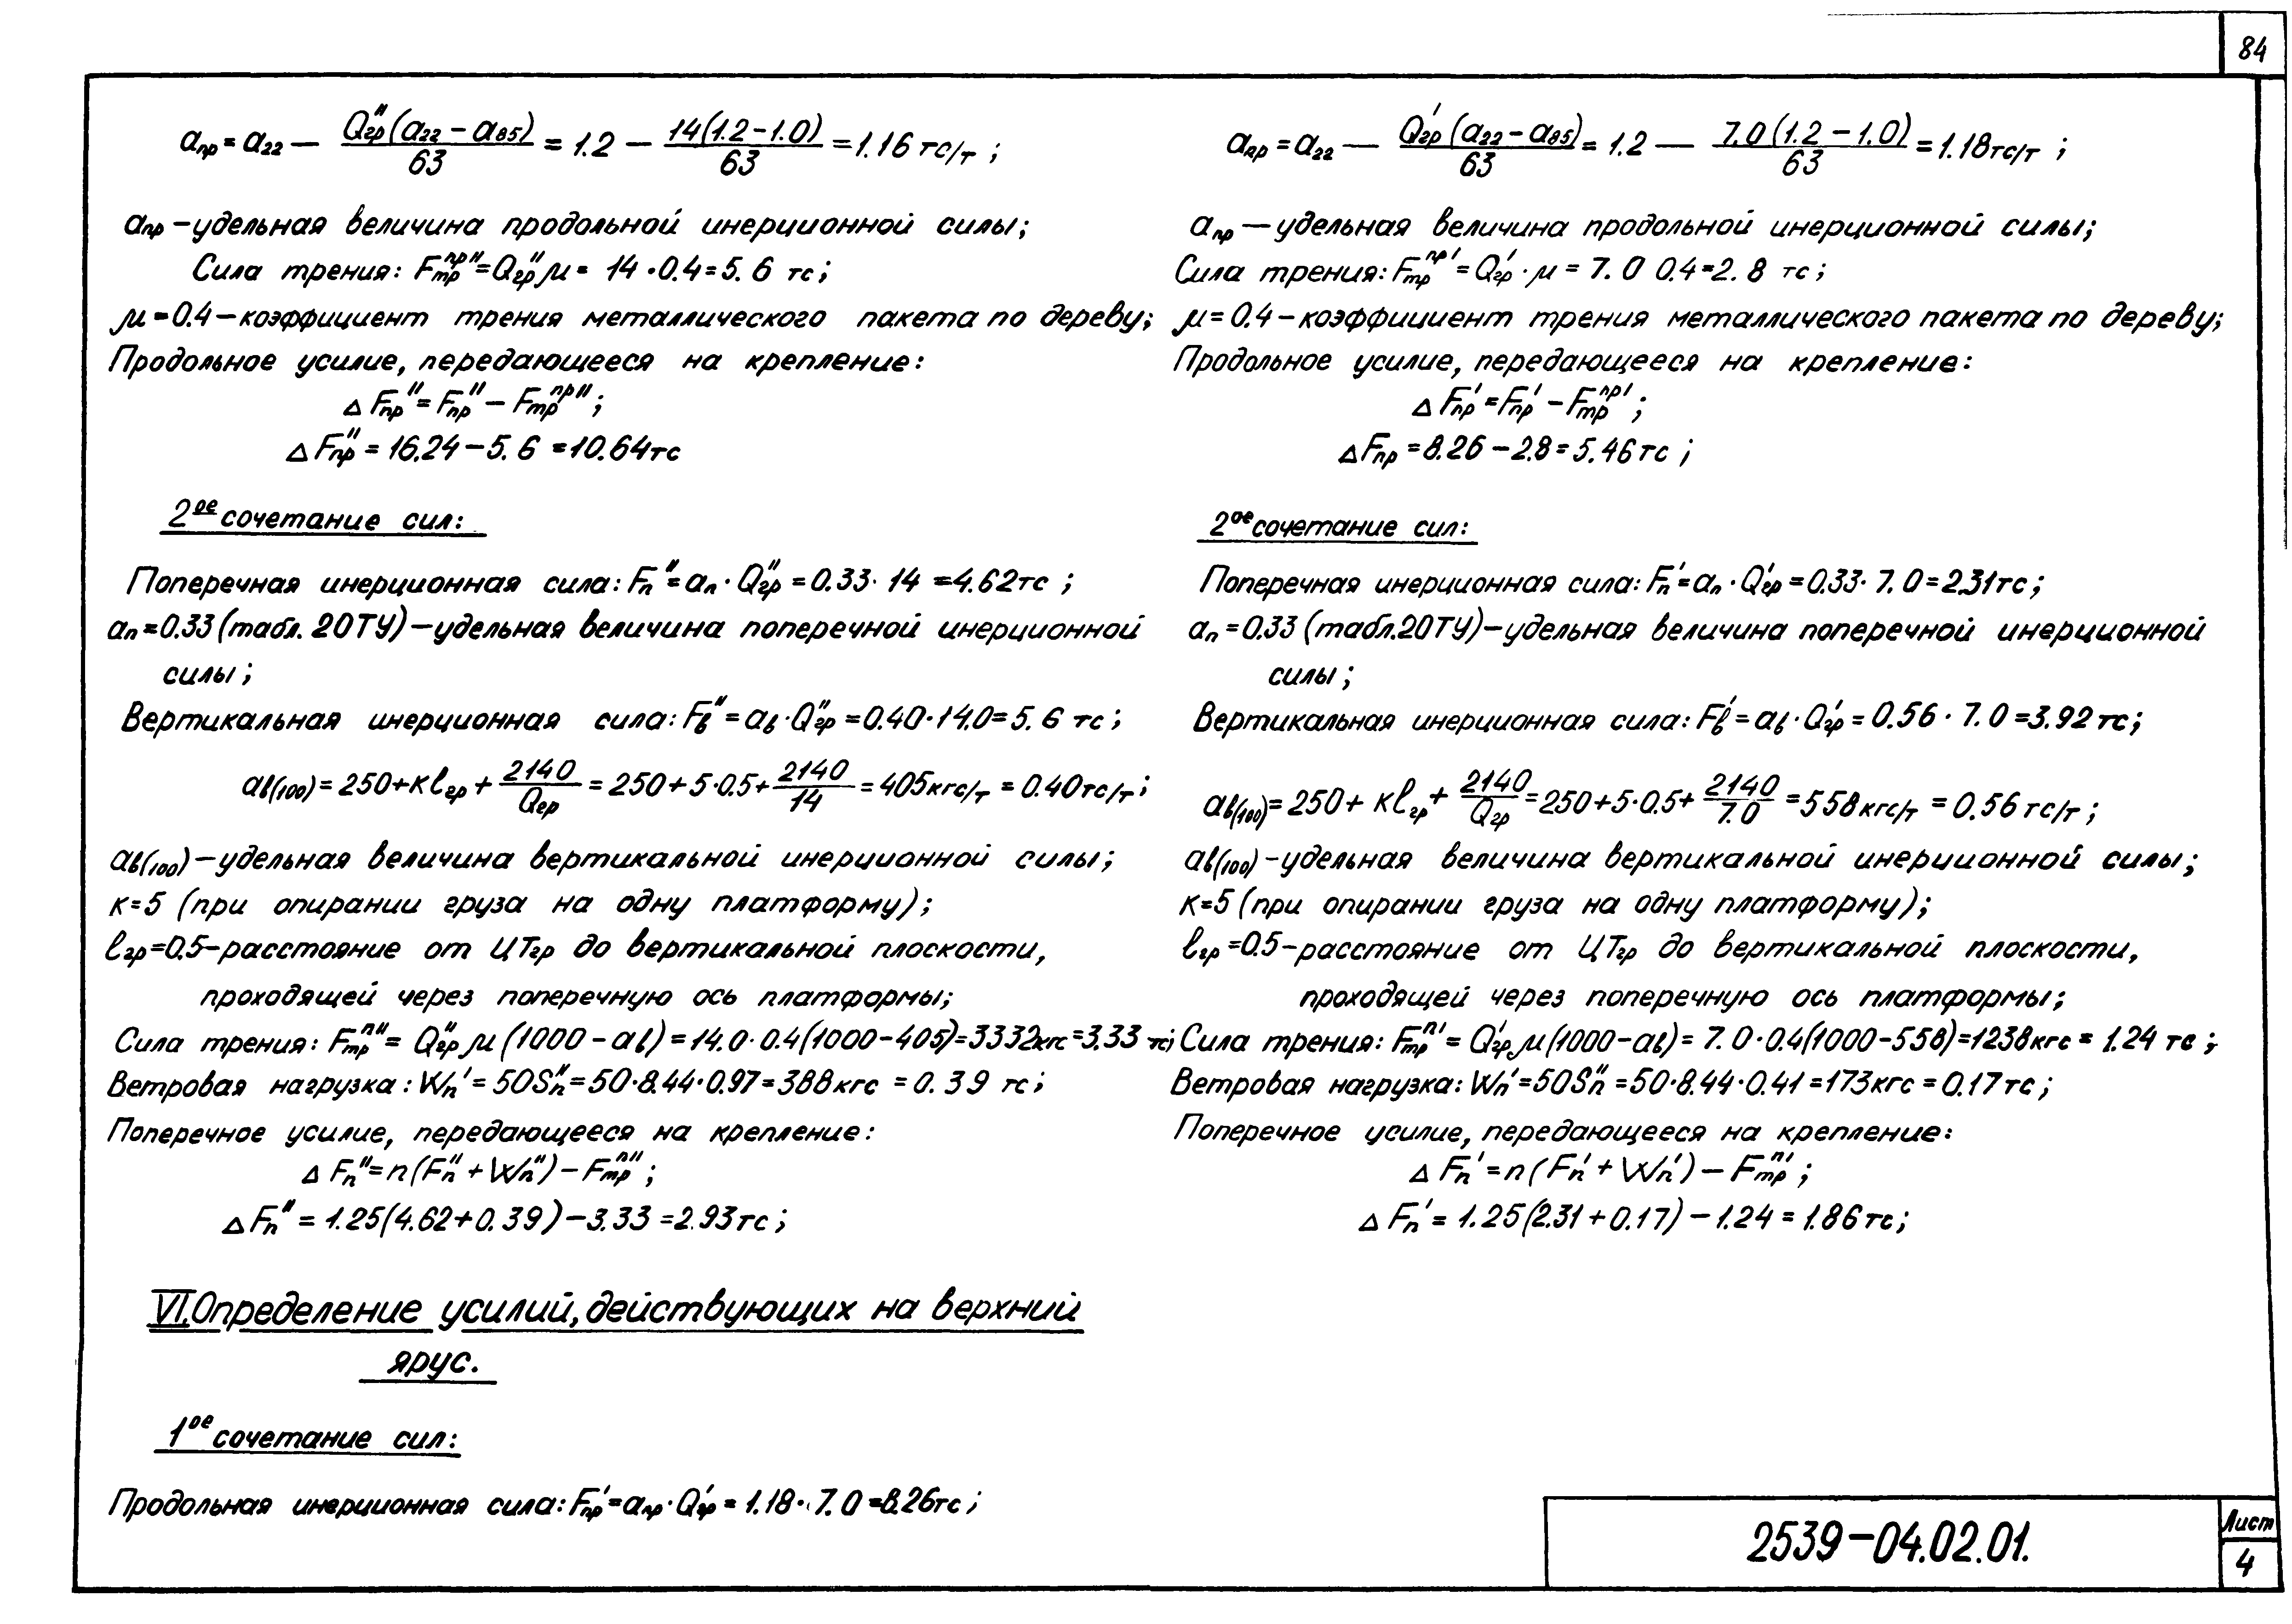 84
aпр = a22 — Q"гр (a22 – a85) / 63 = 1.2 — 14(1.2–1.0) / 63 = 1.16 тс/т ;
aпр – удельная величина продольной инерционной силы;
Сила трения: Fтр^пр" = Q"гр μ = 14 · 0.4 = 5.6 тс;
μ = 0.4 – коэффициент трения металлического пакета по дереву;
Продольное усилие, передающееся на крепление:
Δ Fпр" = Fпр" – Fтр^пр" ;
Δ Fпр" = 16.24 – 5.6 = 10.64 тс
2ое сочетание сил:
Поперечная инерционная сила: Fп" = aп · Q"гр = 0.33 · 14 = 4.62 тс ;
aп = 0.33 (табл. 20 ТУ) – удельная величина поперечной инерционной
силы;
Вертикальная инерционная сила: Fв" = aв · Q"гр = 0.40 · 14.0 = 5.6 тс ;
aв(100) = 250 + кℓгр + 2140 / Qгр = 250 + 5·0.5 + 2140 / 14 = 405 кгс/т = 0.40 тс/т ;
aв(100) – удельная величина вертикальной инерционной силы;
к=5 (при опирании груза на одну платформу);
ℓгр = 0.5 – расстояние от ЦТгр до вертикальной плоскости,
проходящей через поперечную ось платформы;
Сила трения: Fтр^п" = Q"гр μ (1000 – aв) = 14.0 · 0.4 (1000 – 405) = 3332 кгс = 3.33 тс;
Ветровая нагрузка: Wп' = 50Sп" = 50·8.44·0.97 = 388 кгс = 0.39 тс;
Поперечное усилие, передающееся на крепление:
Δ Fп" = n (Fп" + Wп") – Fтр^п" ;
Δ Fп" = 1.25 (4.62 + 0.39) – 3.33 = 2.93 тс ;
VI. Определение усилий, действующих на верхний
ярус.
1ое сочетание сил:
Продольная инерционная сила: Fпр' = aпр · Q'гр = 1.18 · 7.0 = 8.26 тс ;
aпр = a22 — Q'гр (a22 – a85) / 63 = 1.2 — 7.0 (1.2 – 1.0) / 63 = 1.18 тс/т ;
aпр — удельная величина продольной инерционной силы;
Сила трения: Fтр^пр' = Q'гр · μ = 7.0 0.4 = 2.8 тс;
μ = 0.4 – коэффициент трения металлического пакета по дереву;
Продольное усилие, передающееся на крепление:
Δ Fпр' = Fпр' – Fтр^пр' ;
Δ Fпр = 8.26 – 2.8 = 5.46 тс ;
2ое сочетание сил:
Поперечная инерционная сила: Fп' = aп · Q'гр = 0.33 · 7.0 = 2.31 тс;
aп = 0.33 (табл. 20 ТУ) – удельная величина поперечной инерционной
силы;
Вертикальная инерционная сила: Fв' = aв · Q'гр = 0.56 · 7.0 = 3.92 тс;
aв(100) = 250 + кℓгр + 2140 / Qгр = 250 + 5·0.5 + 2140 / 7.0 = 558 кгс/т = 0.56 тс/т ;
aв(100) – удельная величина вертикальной инерционной силы;
к=5 (при опирании груза на одну платформу);
ℓгр = 0.5 – расстояние от ЦТгр до вертикальной плоскости,
проходящей через поперечную ось платформы;
Сила трения: Fтр^п' = Q'гр μ (1000 – aв) = 7.0 · 0.4 (1000 – 558) = 1238 кгс = 1.24 тс ;
Ветровая нагрузка: Wп' = 50Sп" = 50·8.44·0.41 = 173 кгс = 0.17 тс ;
Поперечное усилие, передающееся на крепление:
Δ Fп' = n (Fп' + Wп') – Fтр^п' ;
Δ Fп' = 1.25 (2.31 + 0.17) – 1.24 = 1.86 тс;
2539–04.02.01.
Лист
4